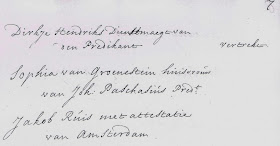 7
Dirkje Hendriks Dienstmaegt van
den Predikant vertrokken
Sophia van Groenestein huisvrouw
van Joh. Paschasius Predt.
Jakob Rúis met attestatie
van Amsterdam.